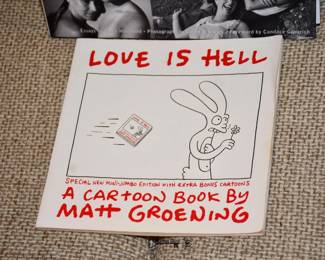 Foreword by Candace Gingrich
LOVE IS HELL
SPECIAL NEW MINI-JUMBO EDITION WITH EXTRA BONUS CARTOONS
A CARTOON BOOK BY
MATT GROENING